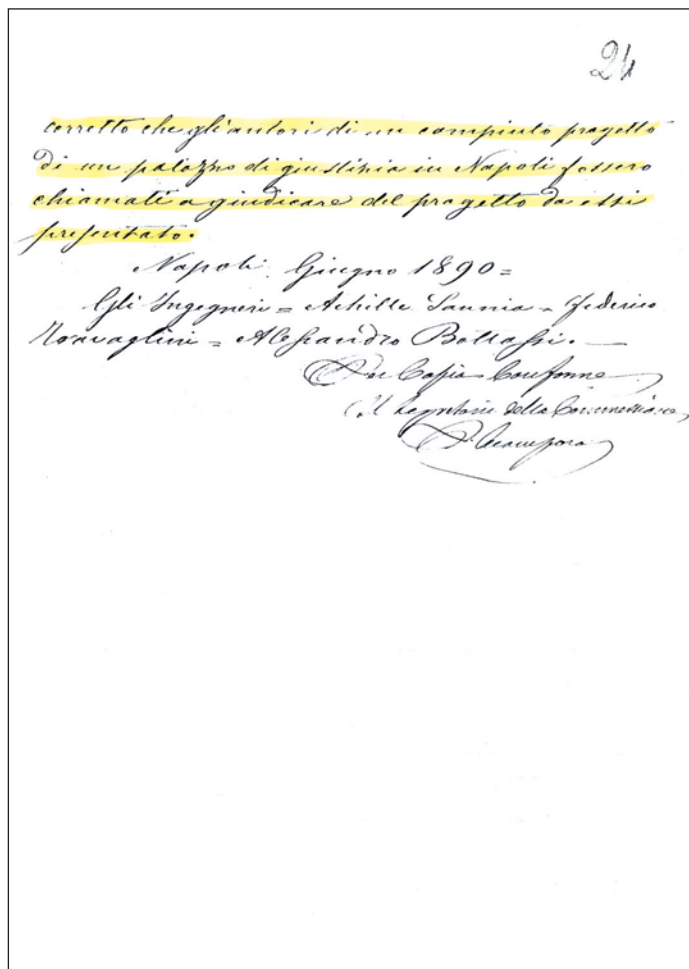 24
corretto che gli autori di un compiuto progetto
di un palazzo di giustizia in Napoli fossero
chiamati a giudicare del progetto da essi
presentato.
Napoli Giugno 1890 =
Gli Ingegneri = Achille Sannia = Federico
Travaglini = Alessandro Bottassi. —
Per Copia Conforme
Il Segretario della Commissione